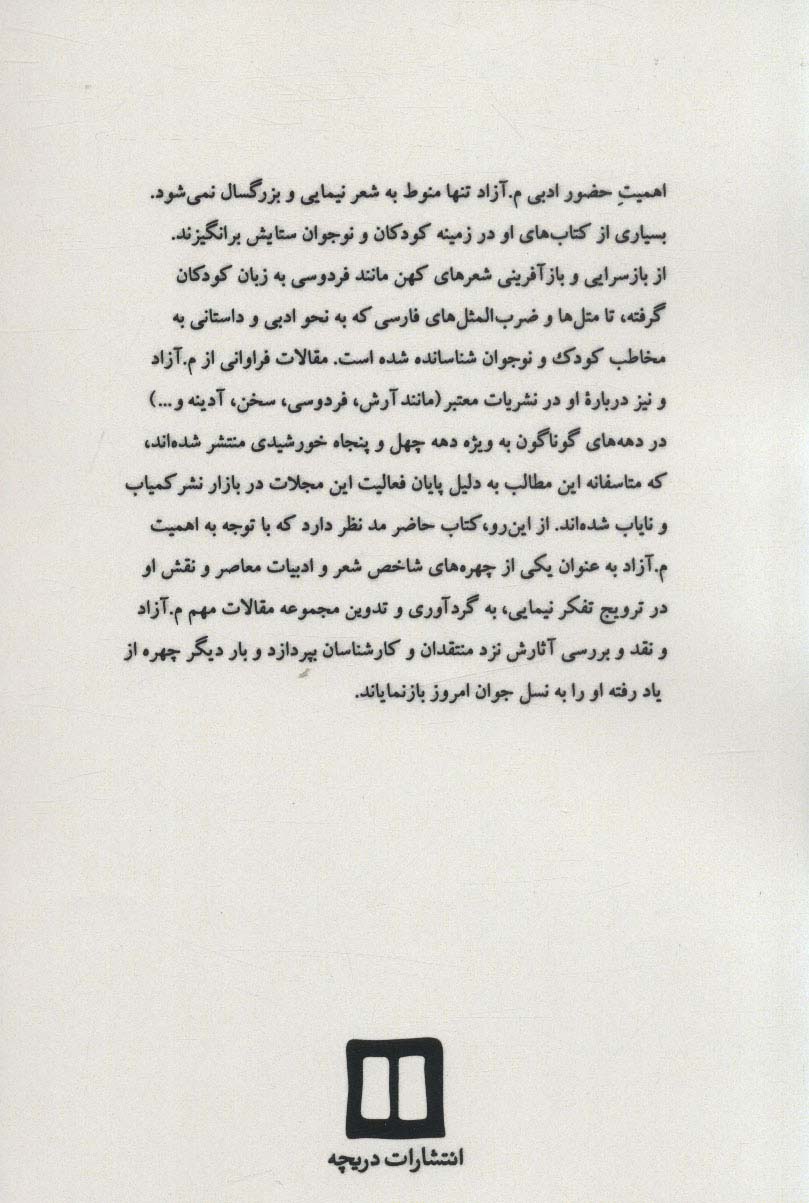 اهمیتِ حضور ادبی م.آزاد تنها منوط به شعر نیمایی و بزرگسال نمی‌شود.
بسیاری از کتاب‌های او در زمینه کودکان و نوجوان ستایش برانگیزند.
از بازسرایی و بازآفرینی شعرهای کهن مانند فردوسی به زبان کودکان
گرفته، تا متل‌ها و ضرب‌المثل‌های فارسی که به نحو ادبی و داستانی به
مخاطب کودک و نوجوان شناسانده شده است. مقالات فراوانی از م.آزاد
و نیز دربارهٔ او در نشریات معتبر (مانند آرش، فردوسی، سخن، آدینه و...)
در دهه‌های گوناگون به ویژه دهه چهل و پنجاه خورشیدی منتشر شده‌اند،
که متاسفانه این مطالب به دلیل پایان فعالیت این مجلات در بازار نشر کمیاب
و نایاب شده‌اند. از این‌رو، کتاب حاضر مد نظر دارد که با توجه به اهمیت
م.آزاد به عنوان یکی از چهره‌های شاخص شعر و ادبیات معاصر و نقش او
در ترویج تفکر نیمایی، به گردآوری و تدوین مجموعه مقالات مهم م.آزاد
و نقد و بررسی آثارش نزد منتقدان و کارشناسان بپردازد و بار دیگر چهره از
یاد رفته او را به نسل جوان امروز بازنمایاند.
انتشارات دریچه